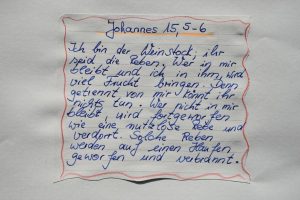 Johannes 15, 5-6
Ich bin der Weinstock, ihr
seid die Reben. Wer in mir
bleibt und ich in ihm, wird
viel Frucht bringen. Denn
getrennt von mir könnt ihr
nichts tun. Wer nicht in mir
bleibt, wird fortgeworfen
wie eine nutzlose Rebe und
verdorrt. Solche Reben
werden auf einen Haufen
geworfen und verbrannt.